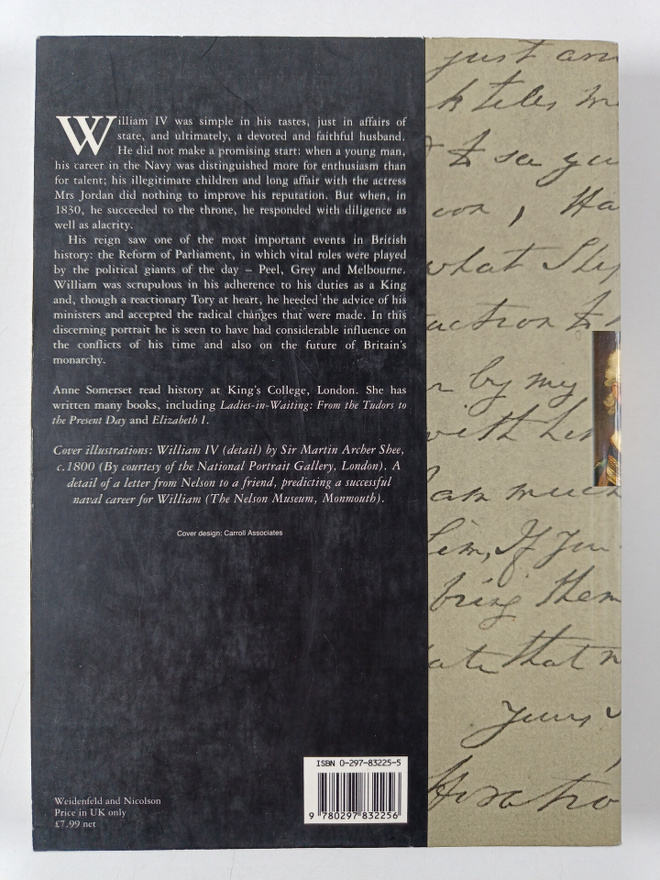 William IV was simple in his tastes, just in affairs of
state, and ultimately, a devoted and faithful husband.
He did not make a promising start: when a young man,
his career in the Navy was distinguished more for enthusiasm than
for talent; his illegitimate children and long affair with the actress
Mrs Jordan did nothing to improve his reputation. But when, in
1830, he succeeded to the throne, he responded with diligence as
well as alacrity.
His reign saw one of the most important events in British
history: the Reform of Parliament, in which vital roles were played
by the political giants of the day – Peel, Grey and Melbourne.
William was scrupulous in his adherence to his duties as a King
and, though a reactionary Tory at heart, he heeded the advice of his
ministers and accepted the radical changes that were made. In this
discerning portrait he is seen to have had considerable influence on
the conflicts of his time and also on the future of Britain's
monarchy.
Anne Somerset read history at King's College, London. She has
written many books, including Ladies-in-Waiting: From the Tudors to
the Present Day and Elizabeth I.
Cover illustrations: William IV (detail) by Sir Martin Archer Shee,
c.1800 (By courtesy of the National Portrait Gallery, London). A
detail of a letter from Nelson to a friend, predicting a successful
naval career for William (The Nelson Museum, Monmouth).
Cover design: Carroll Associates
Weidenfeld and Nicolson
Price in UK only
£7.99 net
ISBN 0-297-83225-5
9 780297 832256
just
to see you
what
by my
with
much
him, If you
bring them
that
Yours
Horatio